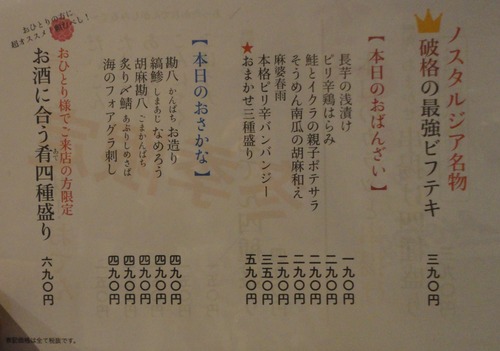 ノスタルジア名物
破格の最強ビフテキ 三九〇円
【本日のおばんざい】
長芋の浅漬け 一九〇円
ピリ辛鶏はらみ 二九〇円
鮭とイクラの親子ポテサラ 二九〇円
そうめん南瓜の胡麻和え 二九〇円
麻婆春雨 二九〇円
本格ピリ辛バンバンジー 三五〇円
★おまかせ三種盛り 五九〇円
【本日のおさかな】
勘八 かんぱち お造り 四九〇円
縞鯵 しまあじ なめろう 四九〇円
胡麻勘八 ごまかんぱち 四九〇円
炙り〆鯖 あぶりしめさば 四九〇円
海のフォアグラ刺し 四九〇円
おひとりの方に
超オススメ!頼むべし!
おひとり様でご来店の方限定
お酒に合う肴四種盛り 六九〇円
表記価格は全て税抜です。